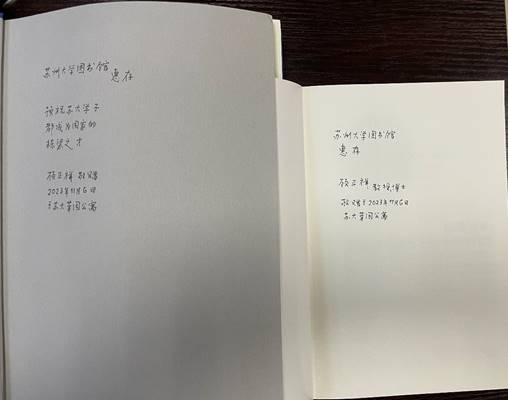 苏州大学图书馆 惠存
预祝苏大学子
都成为国家的
栋梁之才
顾正祥 敬赠
2023年11月6日
于苏大荣园公寓
苏州大学图书馆
惠存
顾正祥 教授博士
敬赠于2023年11月6日
苏大荣园公寓